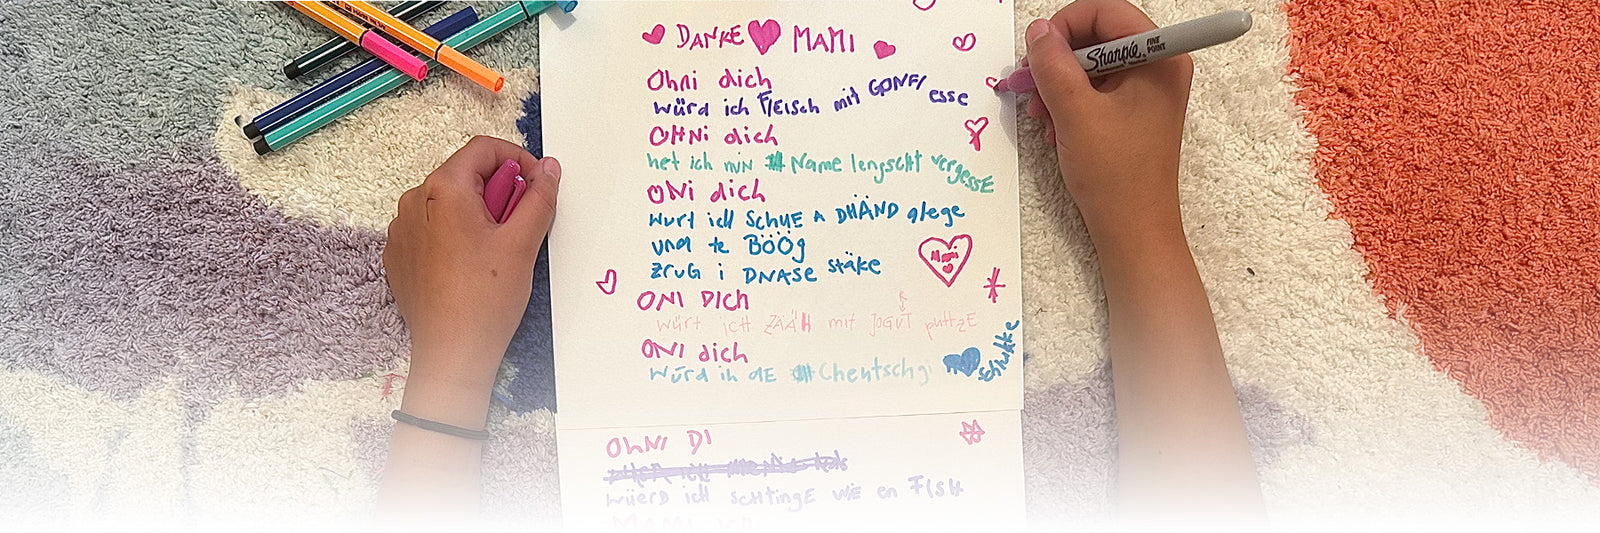 DANKE MAMI
Ohni dich
würd ich Fleisch mit GONFI esse
OHNi dich
het ich min Name lengscht vergessE
ONi dich
wurt ich SCHUE A DHÄND alege
und te BÖÖg
zruG i DNASE stäke
ONI DICH
würt ich ZÄÄH mit JOGUT puttzE
ONI dich
würd ih dE Chentschgi schlukke
Mami
OHNI DI
wüerd ich schtingE WiE en FISH
MAMI ICH
Sharpie FINE POINT